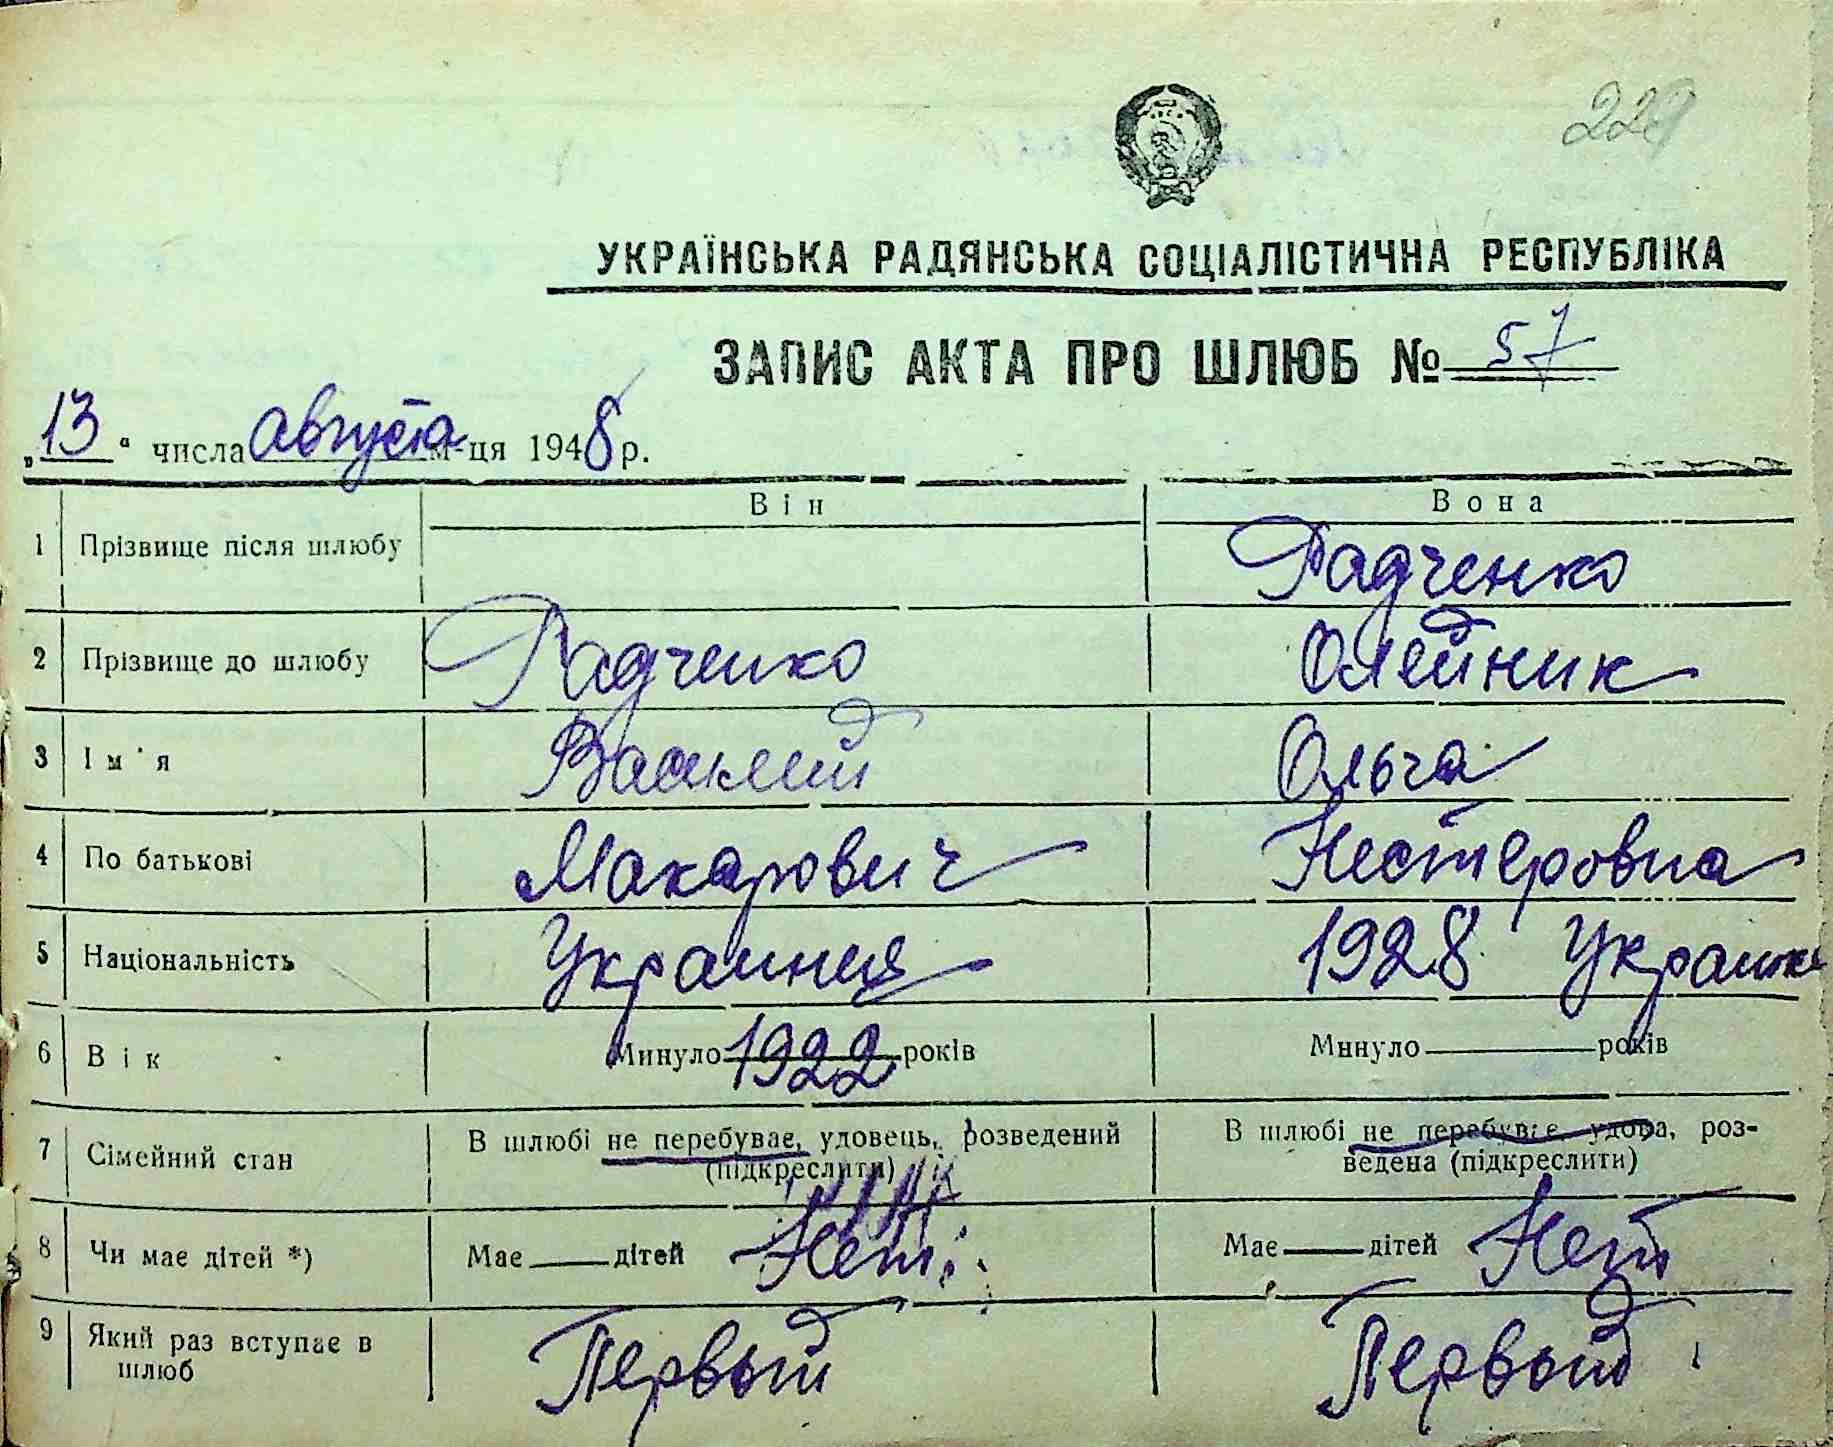 229
УКРАЇНСЬКА РАДЯНСЬКА СОЦІАЛІСТИЧНА РЕСПУБЛІКА
ЗАПИС АКТА ПРО ШЛЮБ № 57
„13“ числа августа м-ця 1948 р.
Він Вона
1 Прізвище після шлюбу Радченко
2 Прізвище до шлюбу Радченко Олейник
3 Ім'я Василий Ольга
4 По батькові Макарович Нестеровна
5 Національність Украинец 1928 Украинка
6 Вік Минуло 1922 років Минуло років
7 Сімейний стан В шлюбі не перебуває, удовець, розведений (підкреслити) В шлюбі не перебуває, удова, роз-
ведена (підкреслити)
8 Чи має дітей *) Має дітей Нет Має дітей Нет
9 Який раз вступає в Первый Первый
шлюб